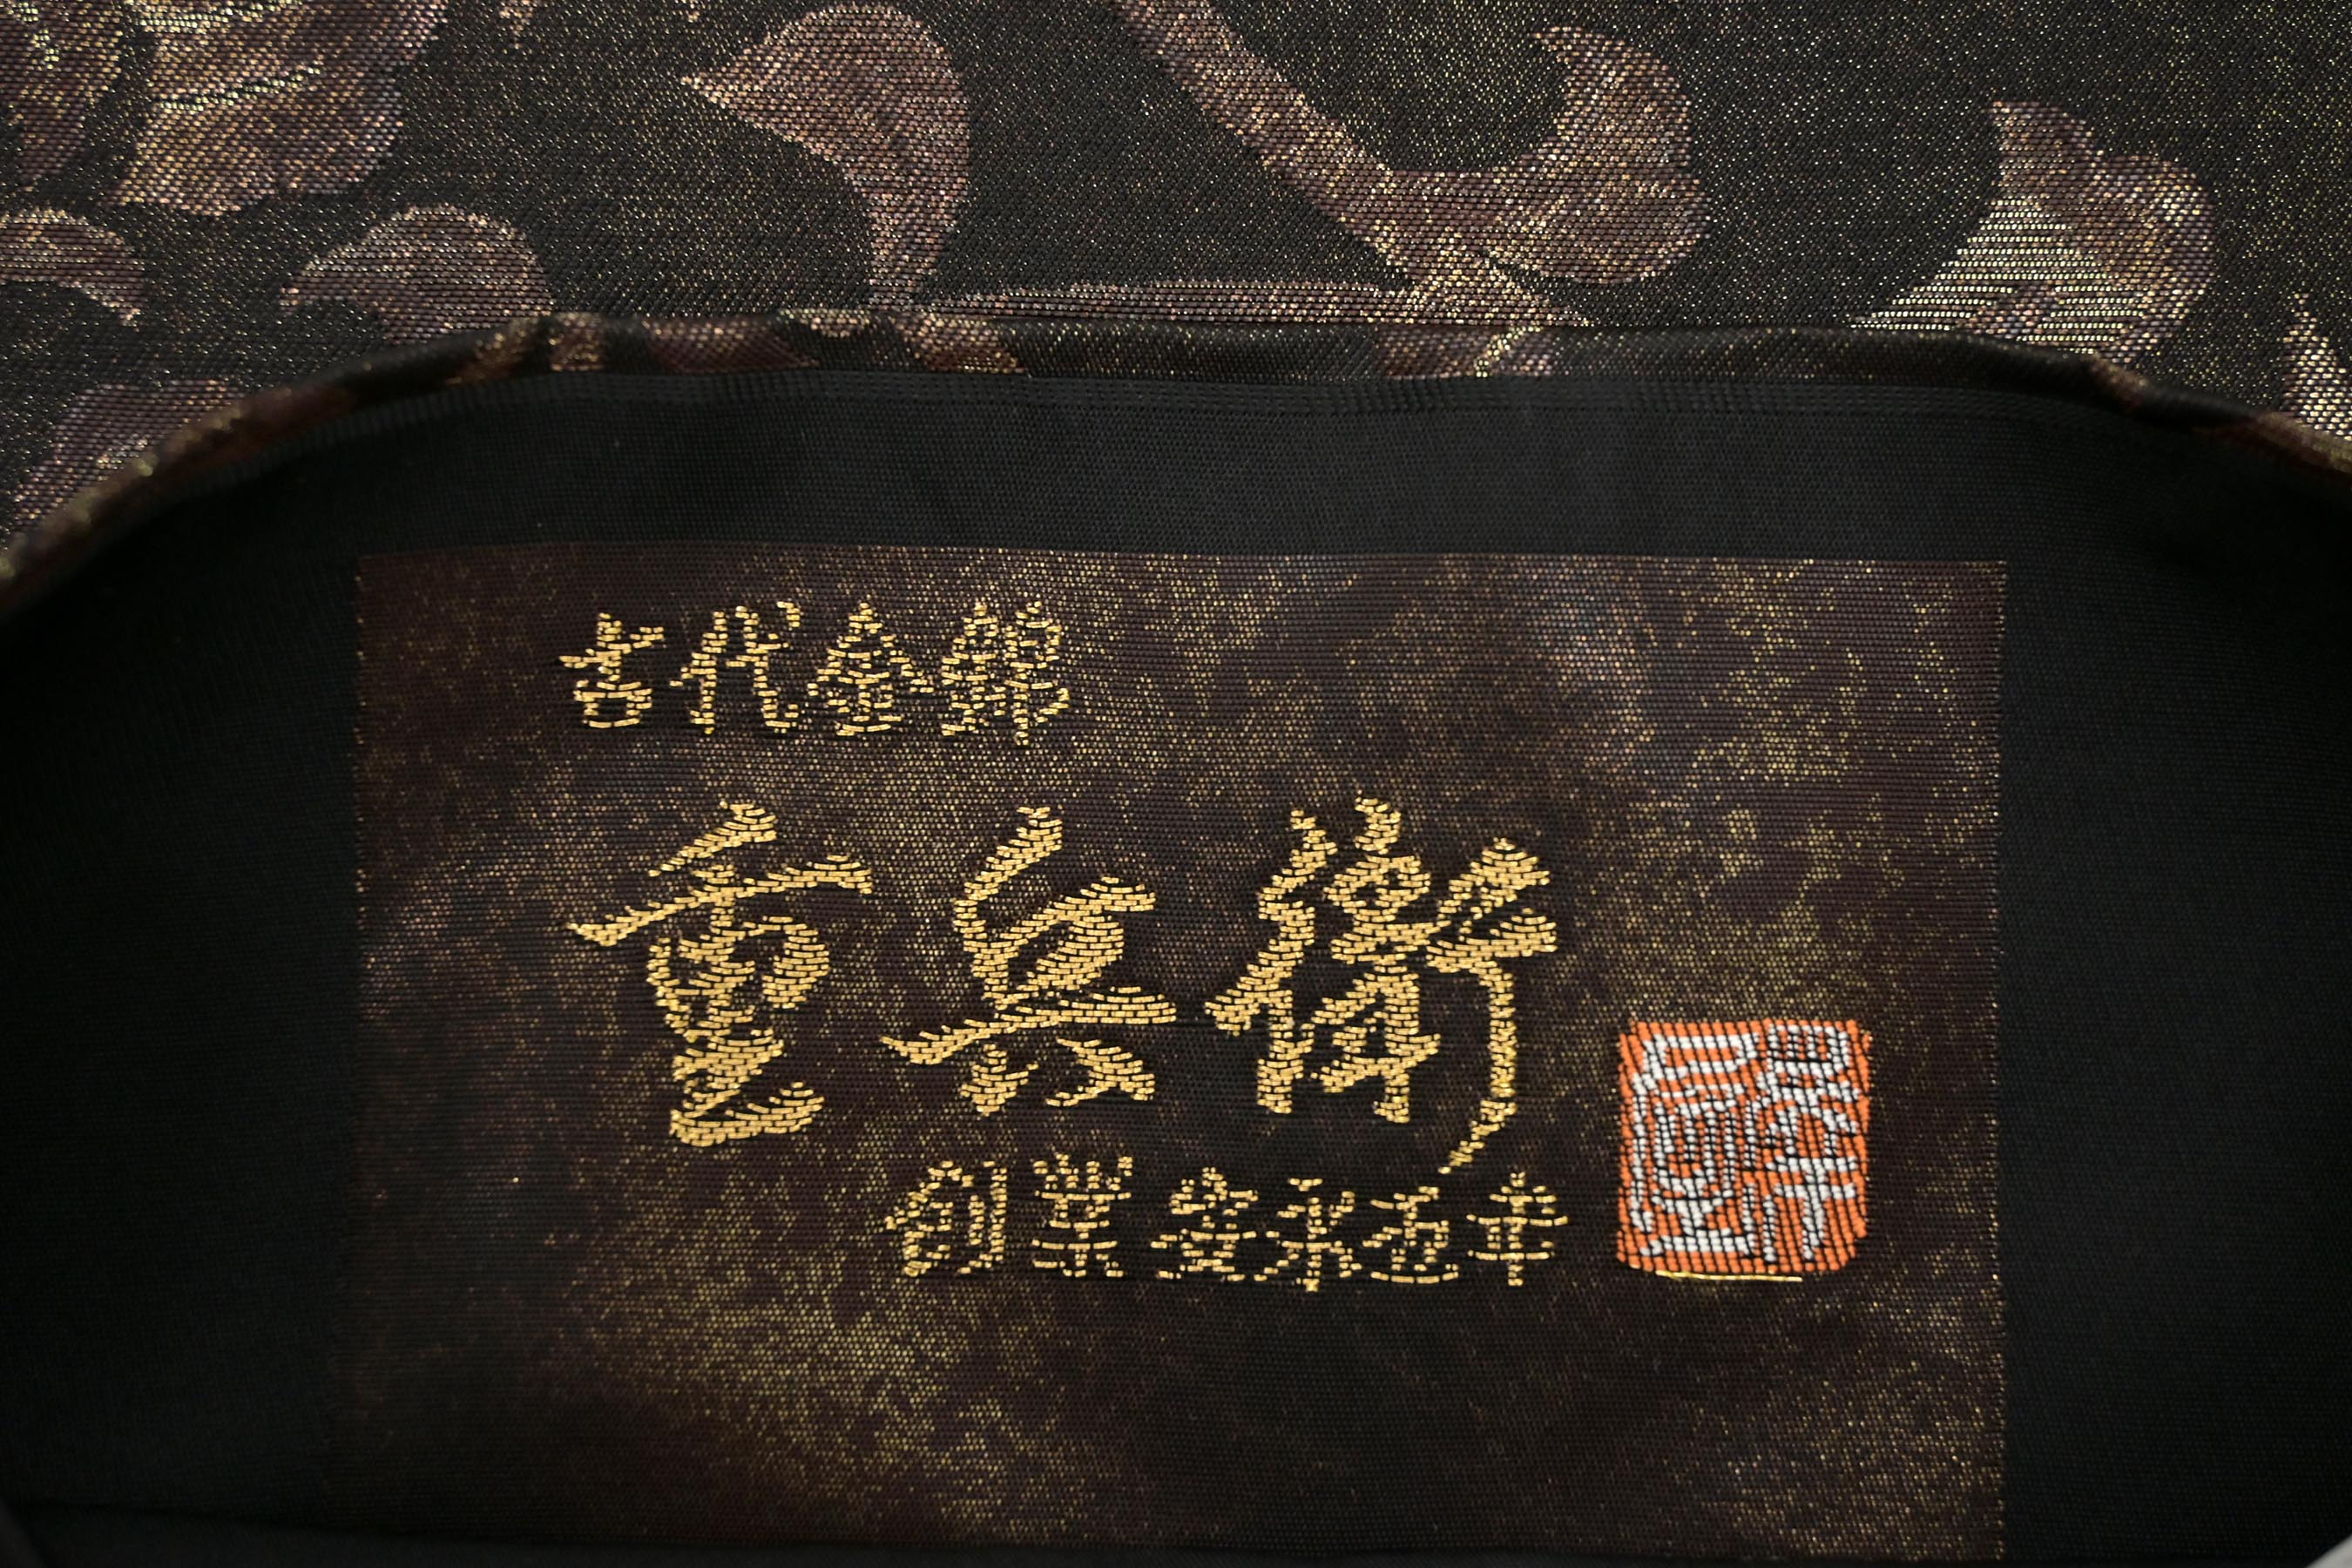 古代金錦
重兵衛
創業安永五年